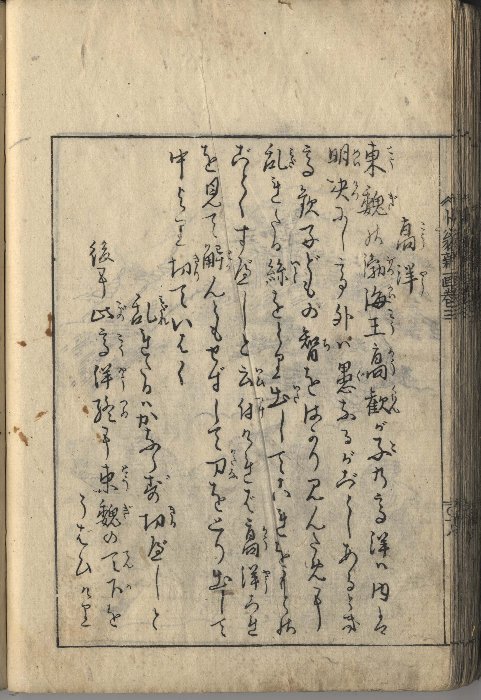 高洋
東魏の渤海王高歓が子乃高洋ハ内は
明决にして外ハ愚なるがごとしあるとき
高歓子どもの智をはかり見んために
乱れたる絲をとり出してこれをもとの
ごとくすべしと云付けれバ高洋これ
を見て解んともせずして刀をとり出して
中より切ていはく
乱れたるハかならず切べしと
後に此高洋終に東魏の天下を
うばひけり